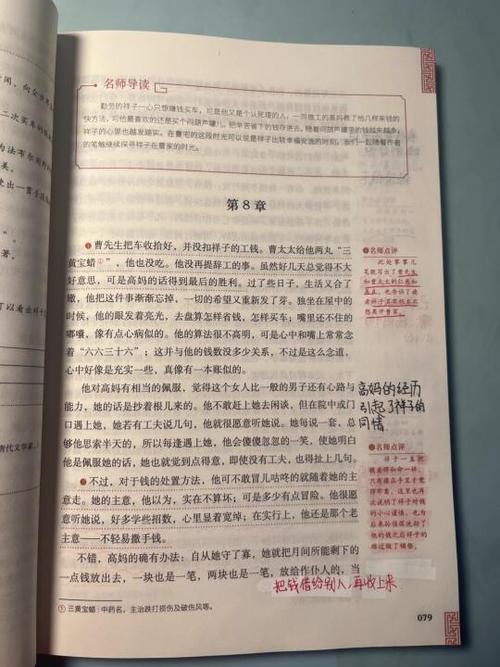 名师导读
勤劳的祥子一心只想赚钱买车，可是他又是个认死理的人，一同做工的高妈教了他几样来钱的
快方法，可他最喜欢的还是买个闷葫芦罐儿，把辛苦省下的钱存进去。随着闷葫芦罐子的钱越来越多，
祥子的心里也越发踏实。在曹宅的这段时光可以说是祥子比较幸福安逸的时刻，我们一起随着作者
的笔触继续探寻祥子在曹家的时光。
第 8 章
❶曹先生把车收拾好，并没扣祥子的工钱。曹太太给他两丸“三
黄宝蜡①”，他也没吃。他没再提辞工的事。虽然好几天总觉得不大
好意思，可是高妈的话得到最后的胜利。过了些日子，生活又合了
辙，他把这件事渐渐忘掉，一切的希望又重新发了芽。独坐在屋中的
时候，他的眼发着亮光，去盘算怎样省钱，怎样买车；嘴里还不住的
嘟囔，像有点心病似的。他的算法很不高明，可是心中和嘴上常常念
着“六六三十六”；这并与他的钱数没多少关系，不过是这么念道，
心中好像是充实一些，真像有一本账似的。
他对高妈有相当的佩服，觉得这个女人比一般的男子还有心路与
能力，她的话是抄着根儿来的。他不敢赶上她去闲谈，但在院中或门
口遇上她，她若有工夫说几句，他就很愿意听她说。她每说一套，总
够他思索半天的，所以每逢遇上她，他会傻傻忽忽的一笑，使她明白
他是佩服她的话，她也就觉到点得意，即使没有工夫，也得扯上几句。
❷不过，对于钱的处置方法，他可不敢冒儿咕咚的就随着她的主
意走。她的主意，他以为，实在不算坏；可是多少有点冒险。他很愿
意听她说，好多学些招数，心里显着宽绰；在实行上，他还是那个老
主意——不轻易撒手钱。
不错，高妈的确有办法：自从她守了寡，她就把月间所能剩下的
一点钱放出去，一块也是一笔，两块也是一笔，放给作仆人的，当
把钱借给别人，再收上来
①三黄宝蜡：中药名，主治跌打损伤及破伤风等。
❶名师点评
高妈的经历
引起了祥子的
同情
❷名师点评
079